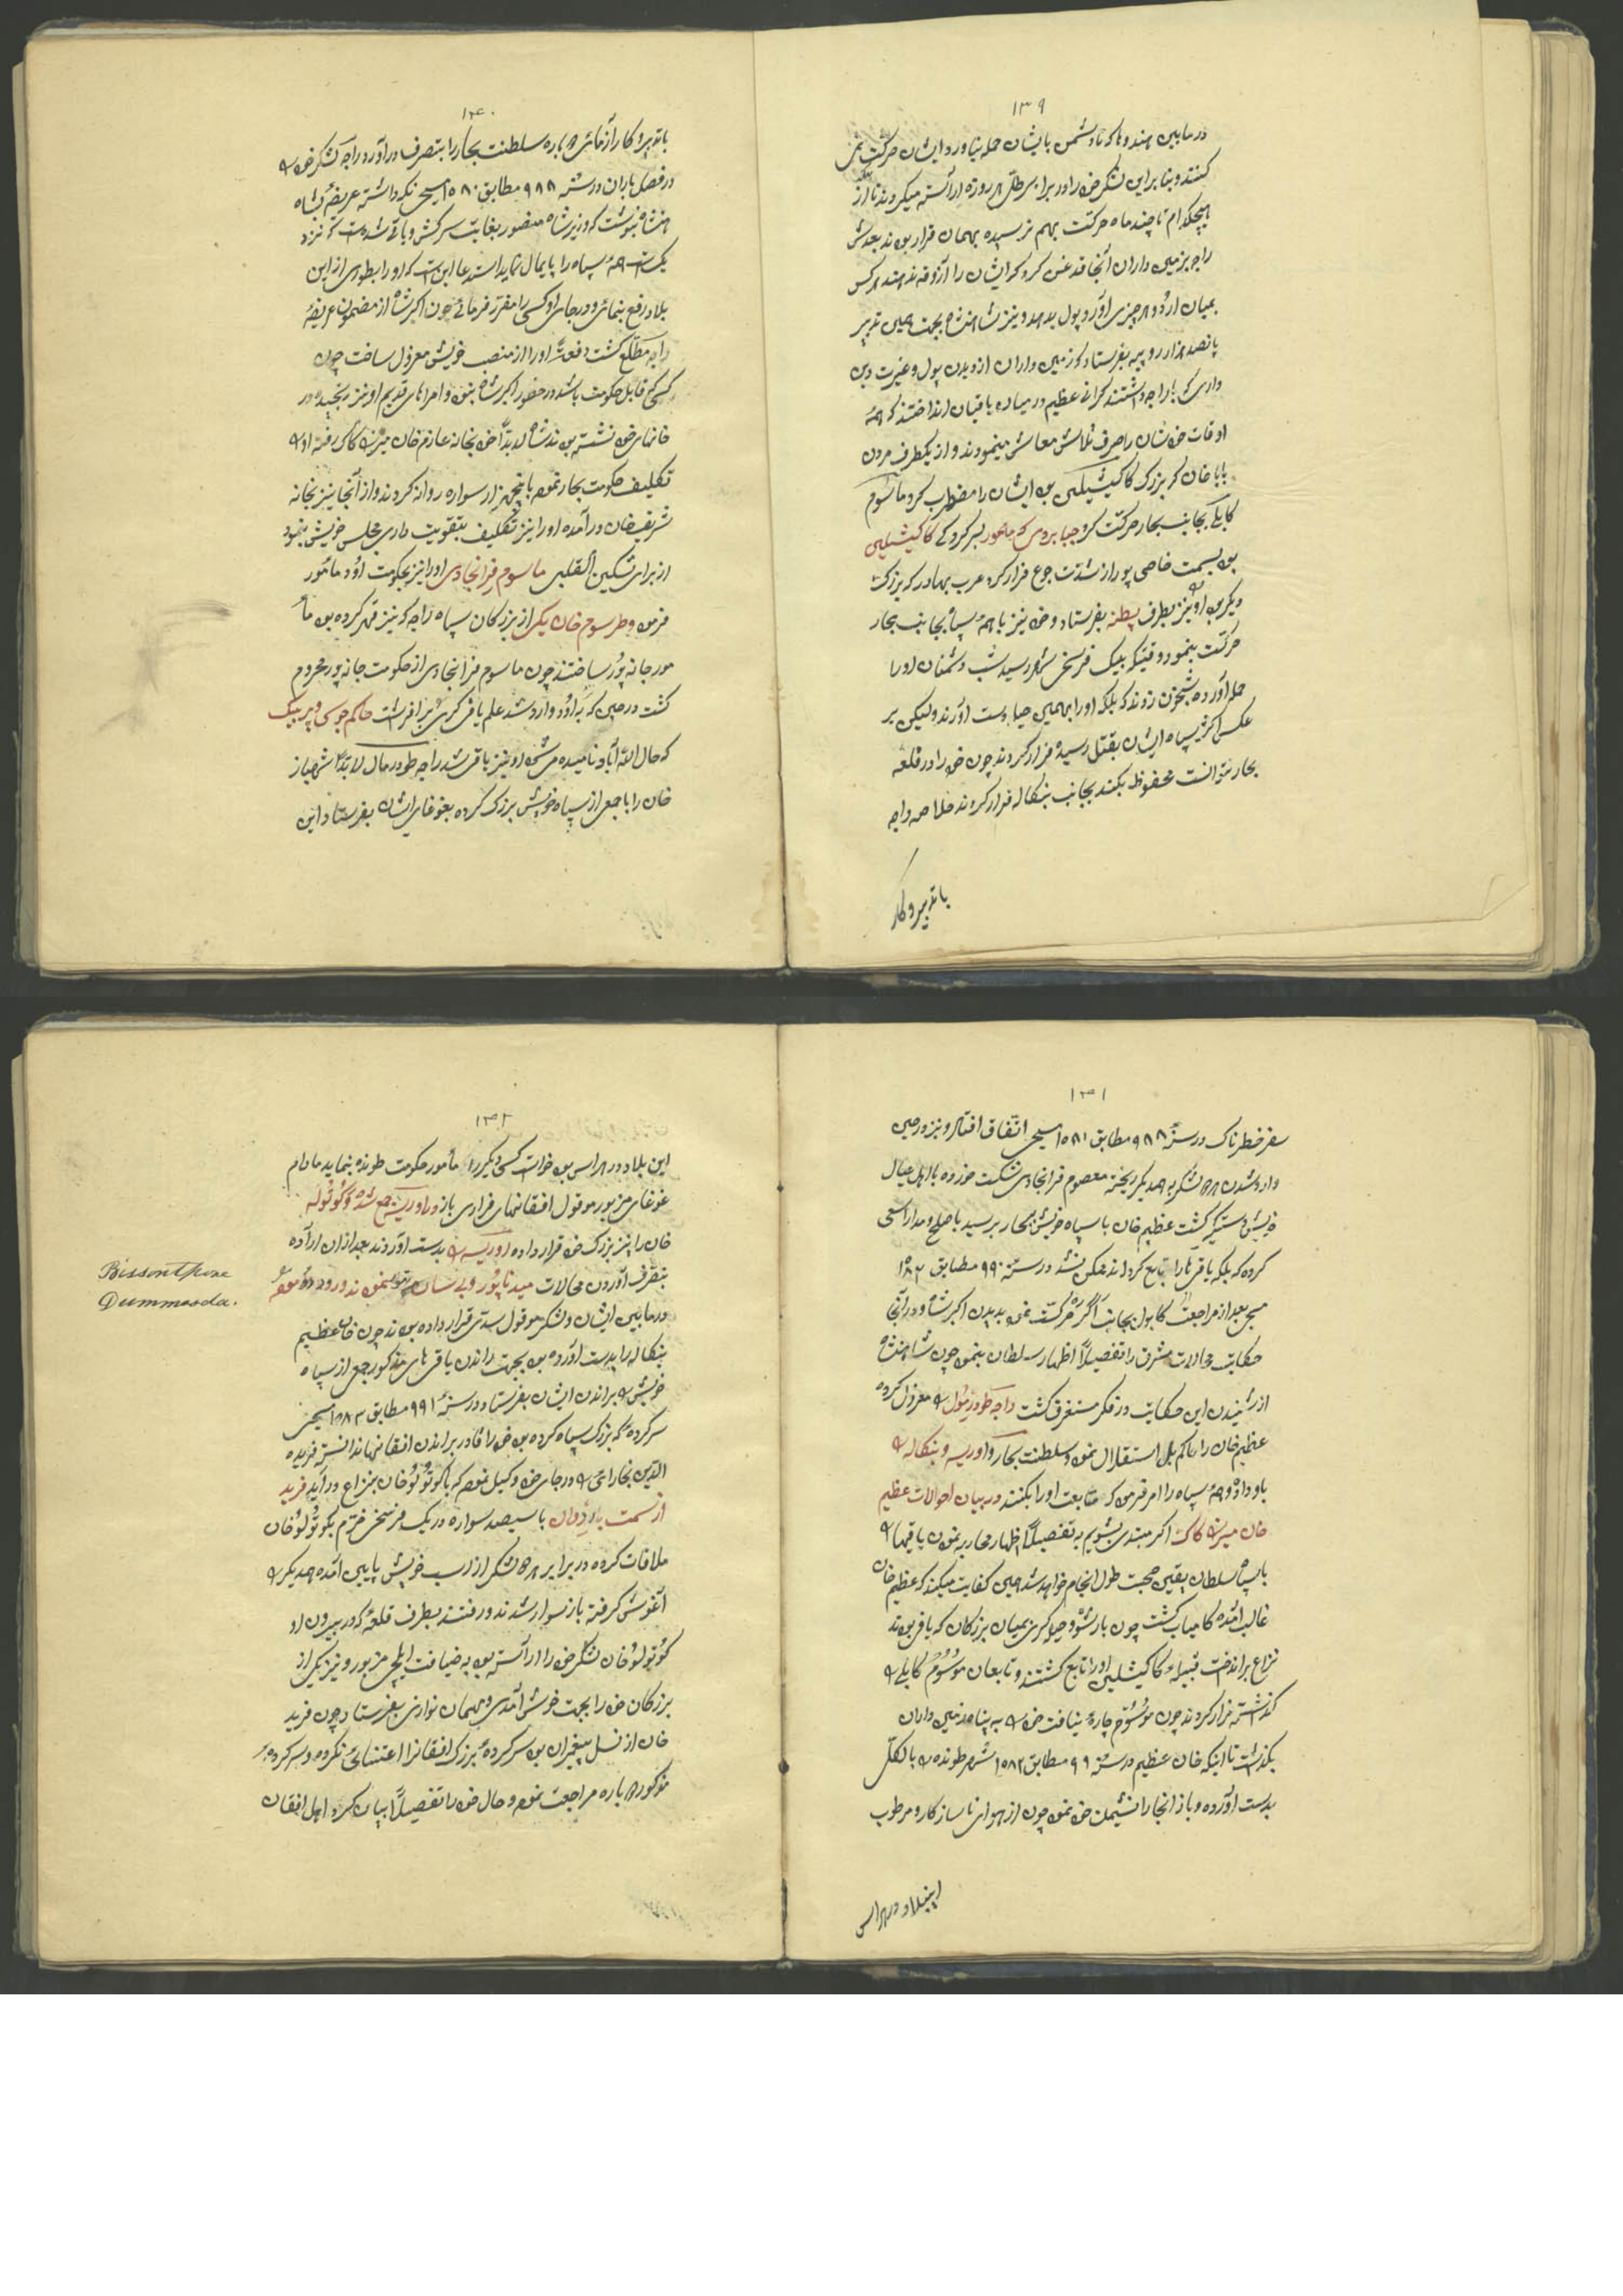 ۱۳۹
در مابین هندوها که تا دشمن بایشان حمله نیاورد ایشان حرکت نمی
کنند و بنا براین لشکر خود را در برابر هر روزه آراسته میکردند تا از
هیچکدام تا چند ماه حرکت بهم نرسیده بهمان قرار بودند بعدش
راجه بزمین داران آنجا قدغن کرد که ایشان را آزوقه ندهند هرکس
بمیان اردو هر چیزی آورد پول بدهد و نیز شاهنشاه بجهت همین تدبیر
پانصد هزار روپیه بفرستاد که زمین داران از دیدن پول و غیرت دین
داری که با راجه داشتند گرانی عظیم در میان یاقیان انداختند که همهٔ
اوقات خودشان را صرف تلاش معاش مینمودند و از یکطرف مردن
بابا خان که بزرگ کاکیشیلیین بود ایشان را مضطرب کرد ماسوم
کابلی بجانب بحار حرکت کرد جبا بردی که مامور بسرکردگی کاکیشیلیین
بود بسمت حاصی پور از شدت جوع فرار کرد عرب بهادر که بزرگ
دیگر بود او نیز بطرف پطنه بفرستاد و خود نیز با همهٔ سپاه بجانب بحار
حرکت بنمود وقتیکه بیک فرسخی شهر رسید شب دشمنان او را
حمله آورده شبخون زدند که بلکه او را بهمین حیله بدست آورند ولیکن بر
عکس اکثر سپاه ایشان بقتل رسیده فرار کردند چون خود را در قلعه
بحار نتوانست محفوظ بکند بجانب بنکاله فرار کردند خلاصه راجه
با تدبیر و کار
۱۴۰
با تدبیر و کار ازمائی دوباره سلطنت بحار را بتصرف درآورد راجه لشکر خود را
در فصل باران در سنهٔ ۹۸۸ مطابق ۱۵۸۰ مسیحی نکه داشته عریضهٔ بشاه
هنشاه بنوشت که وزیر شاه منصور بغایت سرکش و یاقی شده است که نزد
یکست همهٔ سپاه را پایمال نماید استدعا این است که او را بطوری از این
بلاد رفع بنمائی و در جای او کسی را مقرر فرمائی چون اکبر شاه از مضمون عریضهٔ
راجه مطلع گشت دفعتاً او را از منصب خویش معزول ساخت چون
کسی که قابل حکومت باشد در حضور اکبر شاه نبود و امراهای قدیم او نیز رنجیده در
خانهای خود نشسته بودند شاه لابداً خود بخانهٔ عازم خان میرزا کاک رفته او را
تکلیف حکومت بحار نمود با پنجهزار سواره روانه کردند و از آنجا نیز بخانه
شریف خان درآمده او را نیز تکلیف بتقویت داری مجلس خویش بنمود
از برای تسکین القلبی ماسوم فرانجادی او را نیز بحکومت اؤد مأمور
فرمود و طرسوم خان یکی از بزرگان سپاه راجه که نیز قهر کرده بود مأ
مور جانه پور ساختند چون ماسوم فرانجادی از حکومت جانه پور محروم
گشت در حینی که به اؤد وارد شد علم یاقی گری برافراشت حاکم جوسی و پیر بیک
که حال الله آباد نامیده میشود او نیز یاقی شد راجه طودرمال لابداً شهباز
خان را با جمعی از سپاه خویش بزرگ کرده بغوغای ایشان بفرستاد این
۱۴۱
سفر خطرناک در سنهٔ ۹۸۸ مطابق ۱۵۸۱ مسیحی اتفاق افتاد و نیز در حین
وارد شدن هر دو لشکر به همدیگر ریخته معصوم فرانجادی شکست خورده با اهل عیال
خویش دستگیر گشت عظیم خان با سپاه خویش ببحار برسید با صلح و مدارا سعی
کرده که بلکه یاقی ها را تابع گرداند ممکن نشد در سنهٔ ۹۹۰ مطابق ۱۵۸۲
مسیحی بعد از مراجعت کابول بجانب آگره حرکت نمود بدیدن اکبر شاه و در آنجا
حکایت محالات مشرق را تفصیلاً اظهار سلطان بنمود چون شاهنشاه
از شنیدن این حکایت در فکر مستغرق گشت راجه طودرمول را معزول کرده
عظیم خان را حاکم بل استقلال نمود و سلطنت بحار و اوریسه و بنکاله را
باو داد و همهٔ سپاه را امر فرمود که متابعت او را بکنند در بیان احوالات عظیم
خان میرزا کاک اگر مبتدی بشویم به تفصیلاً اظهار محاربه نمودن یاقیها را
با سپاه سلطان یقین صحبت طول انجام خواهد شد همین کفایت میکند که عظیم خان
غالب آمده کامیاب گشت چون با رشوه و حیله گری بمیان بزرگان که یاقی بودند
نزاع برانداخت قبیلهٔ کاکیشلیین او را تابع گشتند و تابعان موسوم کابلی را
گذاشته فرار کردند چون موسوم چارهٔ نیافت خود را به پناه زمین داران
بگذاشت تا اینکه خان عظیم در سنهٔ ۹۹۰ مطابق ۱۵۸۲ شهر طونده را بالکل
بدست آورده و باز آنجا را نشیمن خود نمود چون از هوای ناسازکار و مرطوب
اینبلاد در هراس
۱۴۲
این بلاد در هراس بود خواست کسی دیگر را مأمور حکومت طونده بنماید مادام
غوغای مزبور موقول افغانهای فراری باز در اوریسه جمع شده کوتولو
خان را نیز بزرگ خود قرار داده اوریسه را بدست آوردند بعد از آن ارادهٔ
بتصرف آوردن محالات میدناپور و بیسان پور بنمودند و رود دؤموده
در مابین ایشان و لشکر موقول سدّی قرار داده بودند چون خان عظیم
بنکاله را بدست آورده بود بجهت راندن یاقی های مذکور جمعی از سپاه
خویش را براندن ایشان بفرستاد در سنهٔ ۹۹۱ مطابق ۱۵۸۳ مسیحی
سرکرده که بزرگ سپاه کرده بود خود را قادر براندن افغانها ندانسته فریده
الدین بخارائی را در جای خود وکیل نمود که با کوتولو خان بنزاع درآید فرید
از سمت باردوان با سیصد سواره در یک فرسخی خرّم بکوتولو خان
ملاقات کرده در برابر هر دو لشکر از اسب خویش پایین آمده همدیگر را
آغوش گرفته باز سوار شدند و رفتند بطرف قلعهٔ که در بیرون او
کوتولو خان لشکر خود را آراسته بود به ضیافت ایلچی مزبور و نیز یکی از
بزرگان خود را بجهت خوش آمدی و مهمان نوازی بفرستاد چون فرید
خان از نسل پیغمبران بود سرکردهٔ بزرگ افغانرا اعتنائی نکرده و سرکردهٔ
مذکور دوباره مراجعت نمود و حال خود را تفصیلاً بیان کرد اهل افغان
Bissenthpore
Dummooda.